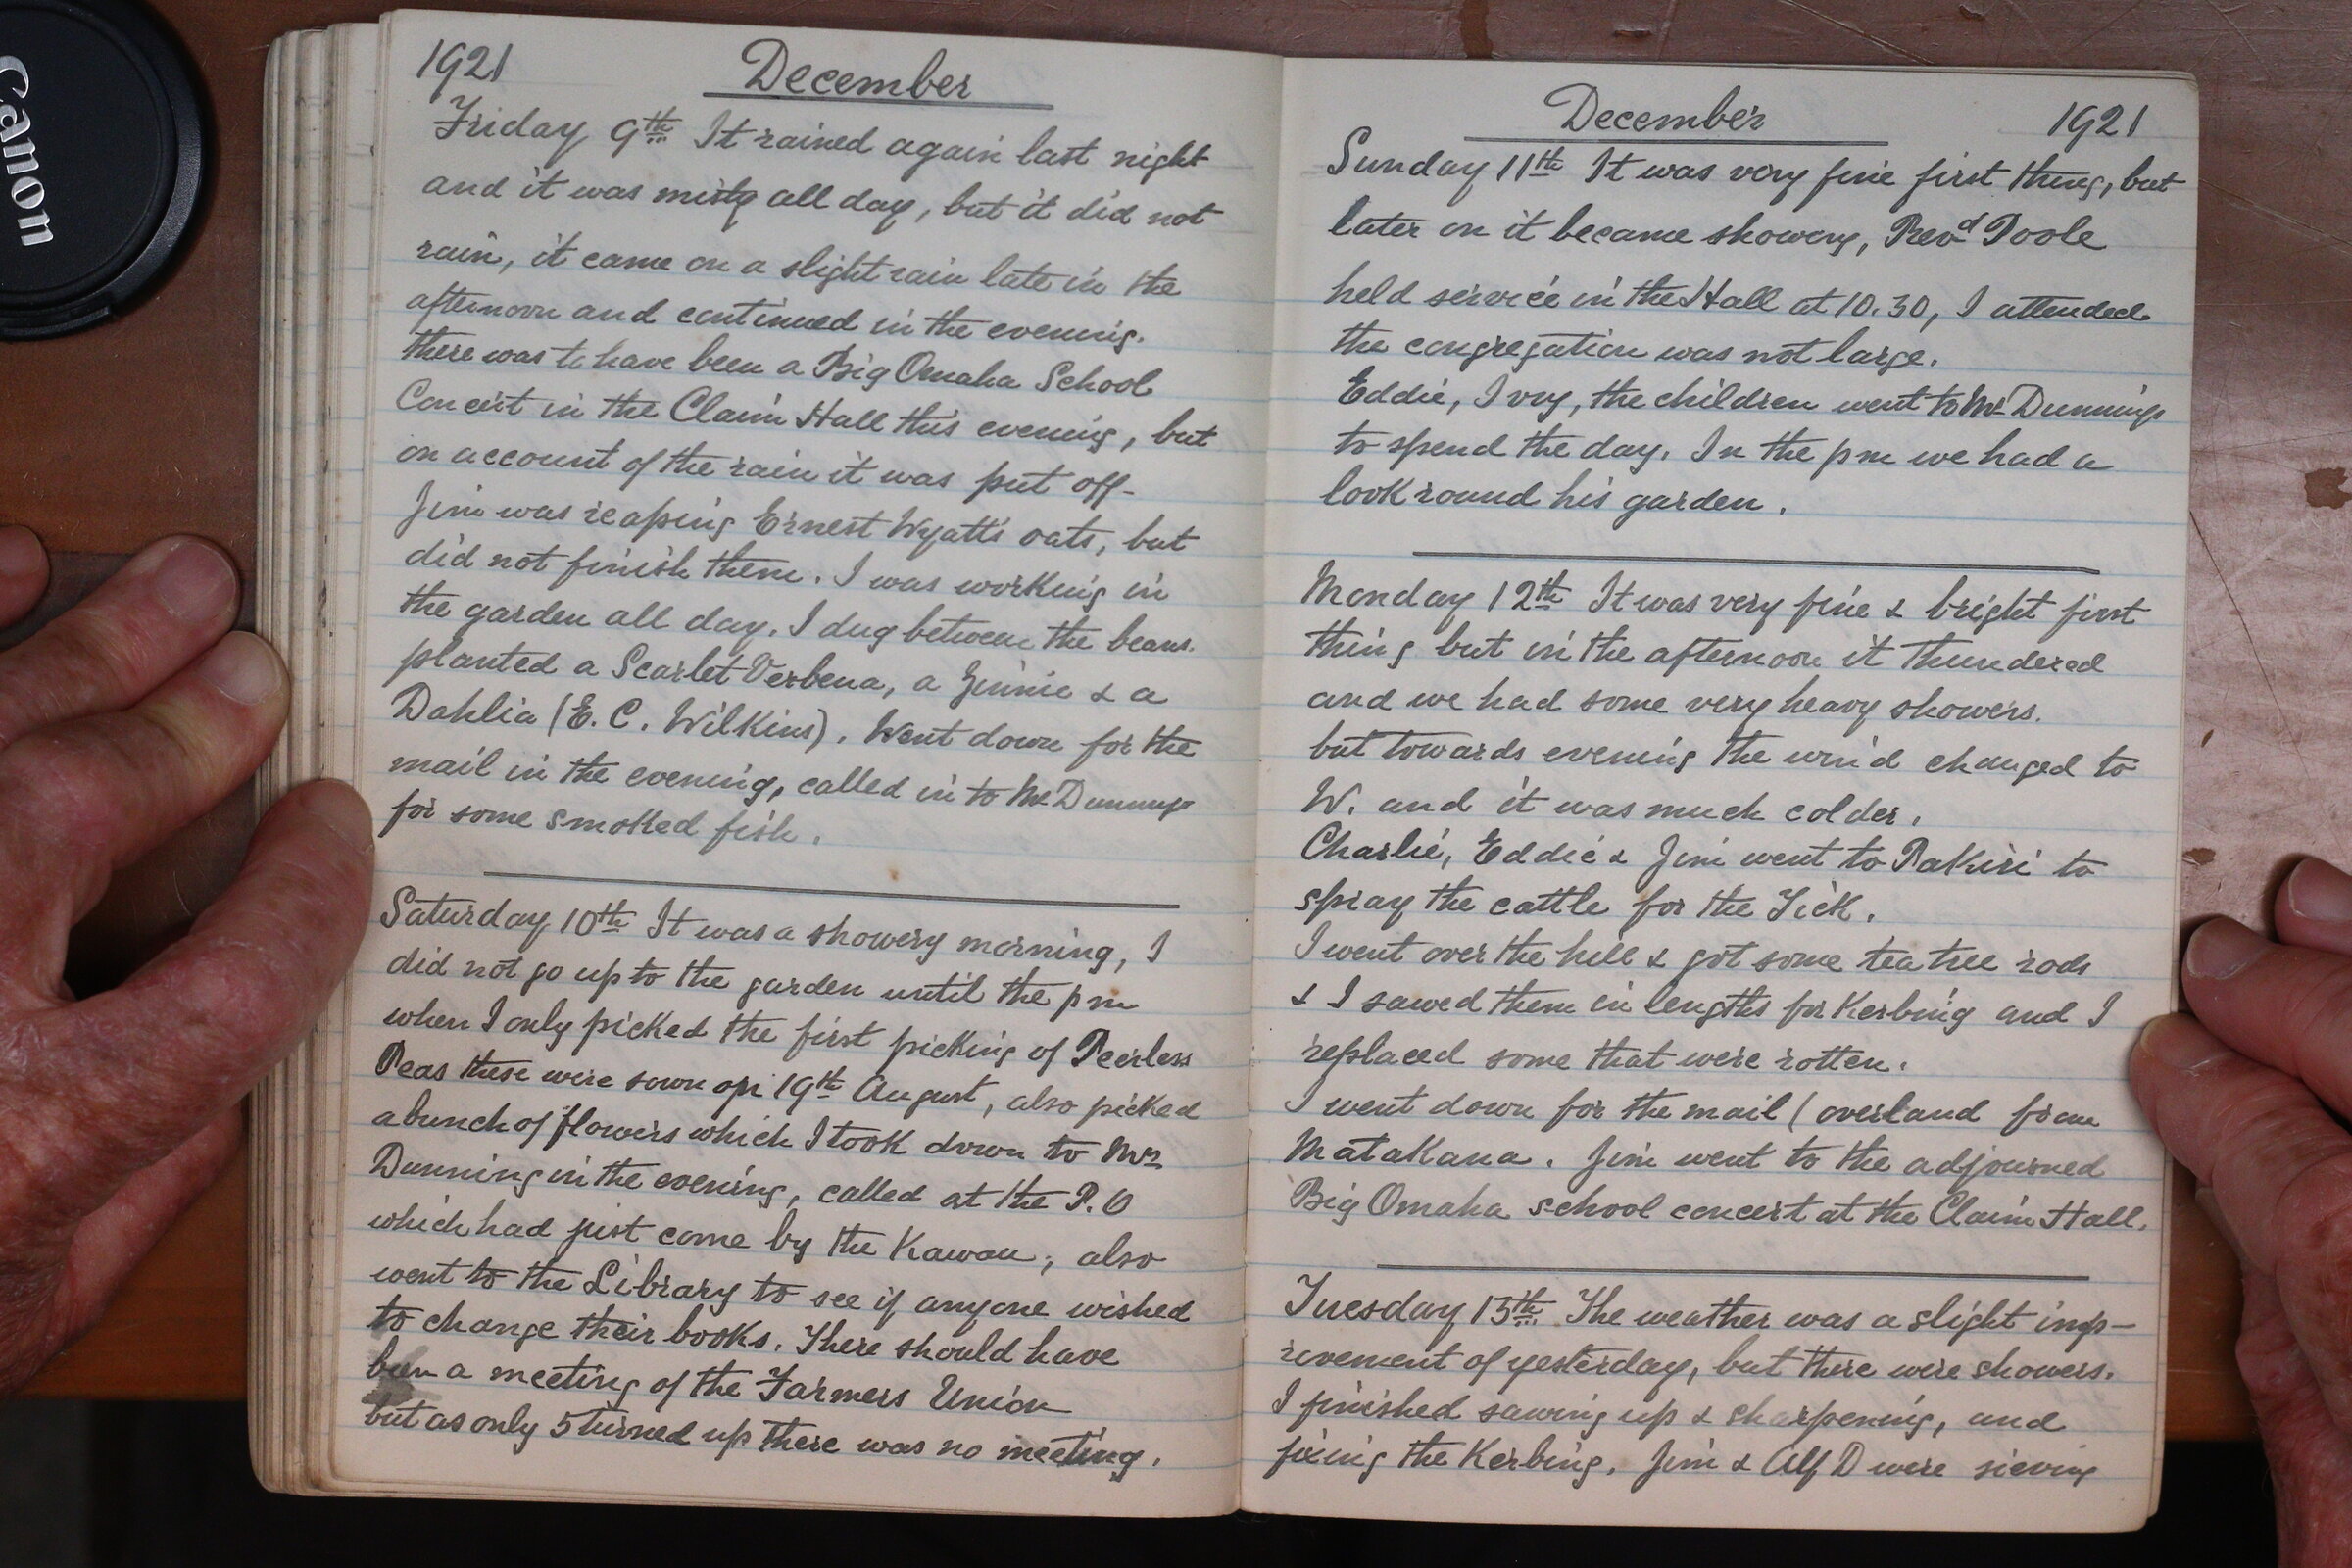 Canon
1921 December
Friday 9th It rained again last night
and it was misty all day, but it did not
rain, it came on a slight rain late in the
afternoon and continued in the evening.
there was to have been a Big Omaha School
Concert in the Claim Hall this evening, but
on account of the rain it was put off-
Jim was reaping Ernest Wyatt's oats, but
did not finish them. I was working in
the garden all day. I dug between the beans.
planted a Scarlet Verbena, a Zinnie & a
Dahlia (E. C. Wilkins). Went down for the
mail in the evening, called in to Mr Dunnings
for some smoked fish.
Saturday 10th It was a showery morning, I
did not go up to the garden until the pm
when I only picked the first picking of Peerless
Peas these were sown on 19th August, also picked
a bunch of flowers which I took down to Mrs
Dunning in the evening, called at the P.O
which had just come by the Kawau, also
went to the Library to see if anyone wished
to change their books. There should have
been a meeting of the Farmers Union
but as only 5 turned up there was no meeting.
December 1921
Sunday 11th It was very fine first thing, but
later on it became showery, Revd Poole
held service in the Hall at 10.30, I attended
the congregation was not large.
Eddie, Ivy, the children went to Mr Dunnings
to spend the day. In the pm we had a
look round his garden.
Monday 12th It was very fine & bright first
thing but in the afternoon it thundered
and we had some very heavy showers.
but towards evening the wind changed to
W. and it was much colder.
Charlie, Eddie & Jim went to Pakiri to
spray the cattle for the Tick.
I went over the hill & got some tea tree rods
& I sawed them in lengths for Kerbing and I
replaced some that were rotten.
I went down for the mail (overland from
Matakana. Jim went to the adjourned
Big Omaha school concert at the Claim Hall.
Tuesday 13th The weather was a slight imp-
rovement of yesterday, but there were showers.
I finished sawing up & sharpening, and
fixing the Kerbing. Jim & Alf D were sieving